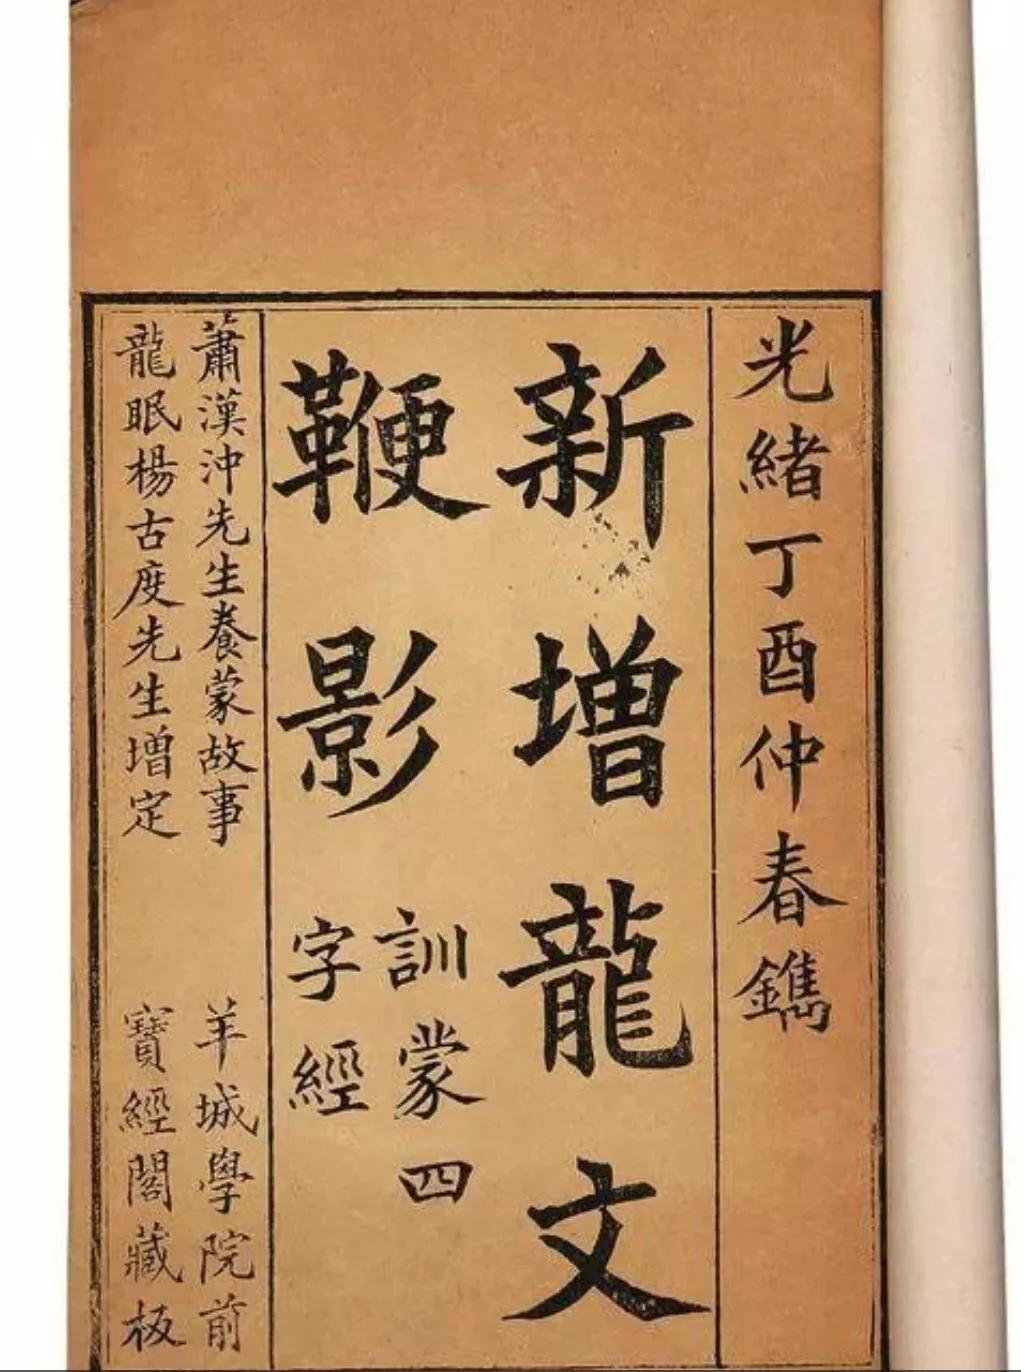 光緒丁酉仲春鐫
新增龍文
鞭影
訓蒙四
字經
蕭漢沖先生養蒙故事
龍眠楊古度先生增定
羊城學院前
寶經閣藏板